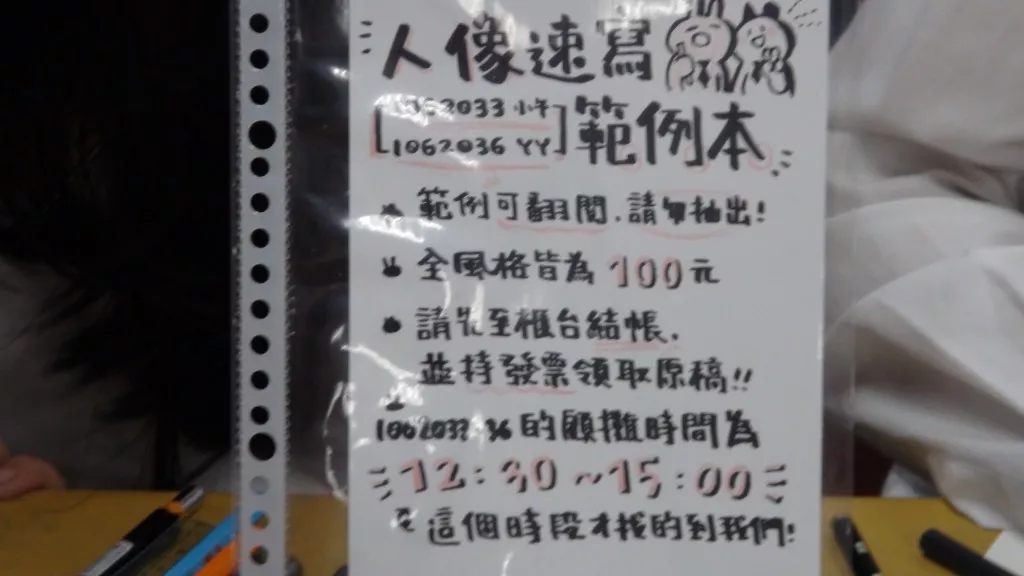 人像速寫
1062033 小午
1062036 YY
範例本
範例可翻閱.請勿抽出!
全風格皆為 100元
請先至櫃台結帳.
並持發票領取原稿!!
1062033.36的顧攤時間為
12:30~15:00
這個時段才找的到我們!